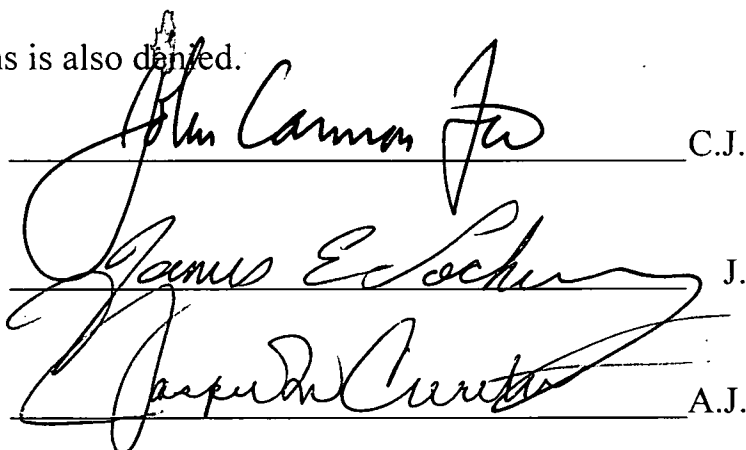 ns is also denied.
John Cannon Few C.J.
James E. Lockemy J.
Jasper M. Cureton A.J.